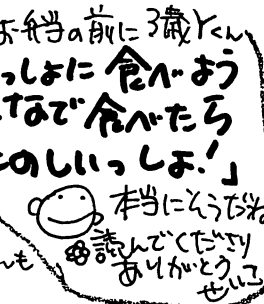 お弁当の前に3歳Yくん
っしょに食べよう
んなで食べたら
のしいっしょ!」
本当にそうだね
読んでくださり
ありがとう
せいこ
も